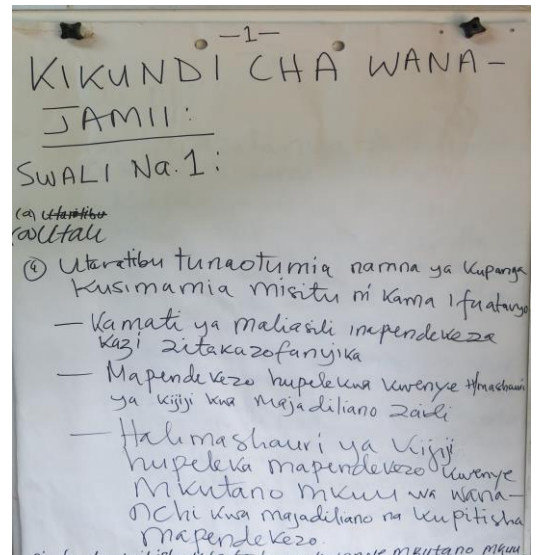 —1—
KIKUNDI CHA WANA-
JAMII:
SWALI Na.1:
(a) Utaratibu
(a) Utali
(a) Utaratibu tunaotumia namna ya kupanga
kusimamia misitu ni kama ifuatavyo
— Kamati ya maliasili inapendekeza
kazi zitakazofanyika
— Mapendekezo hupelekwa kwenye H/mashauri
ya kijiji kwa majadiliano zaidi
— Halmashauri ya kijiji
hupeleka mapendekezo kwenye
mkutano mkuu wa wana-
nchi kwa majadiliano na kupitisha
mapendekezo.
mkutano mkuu